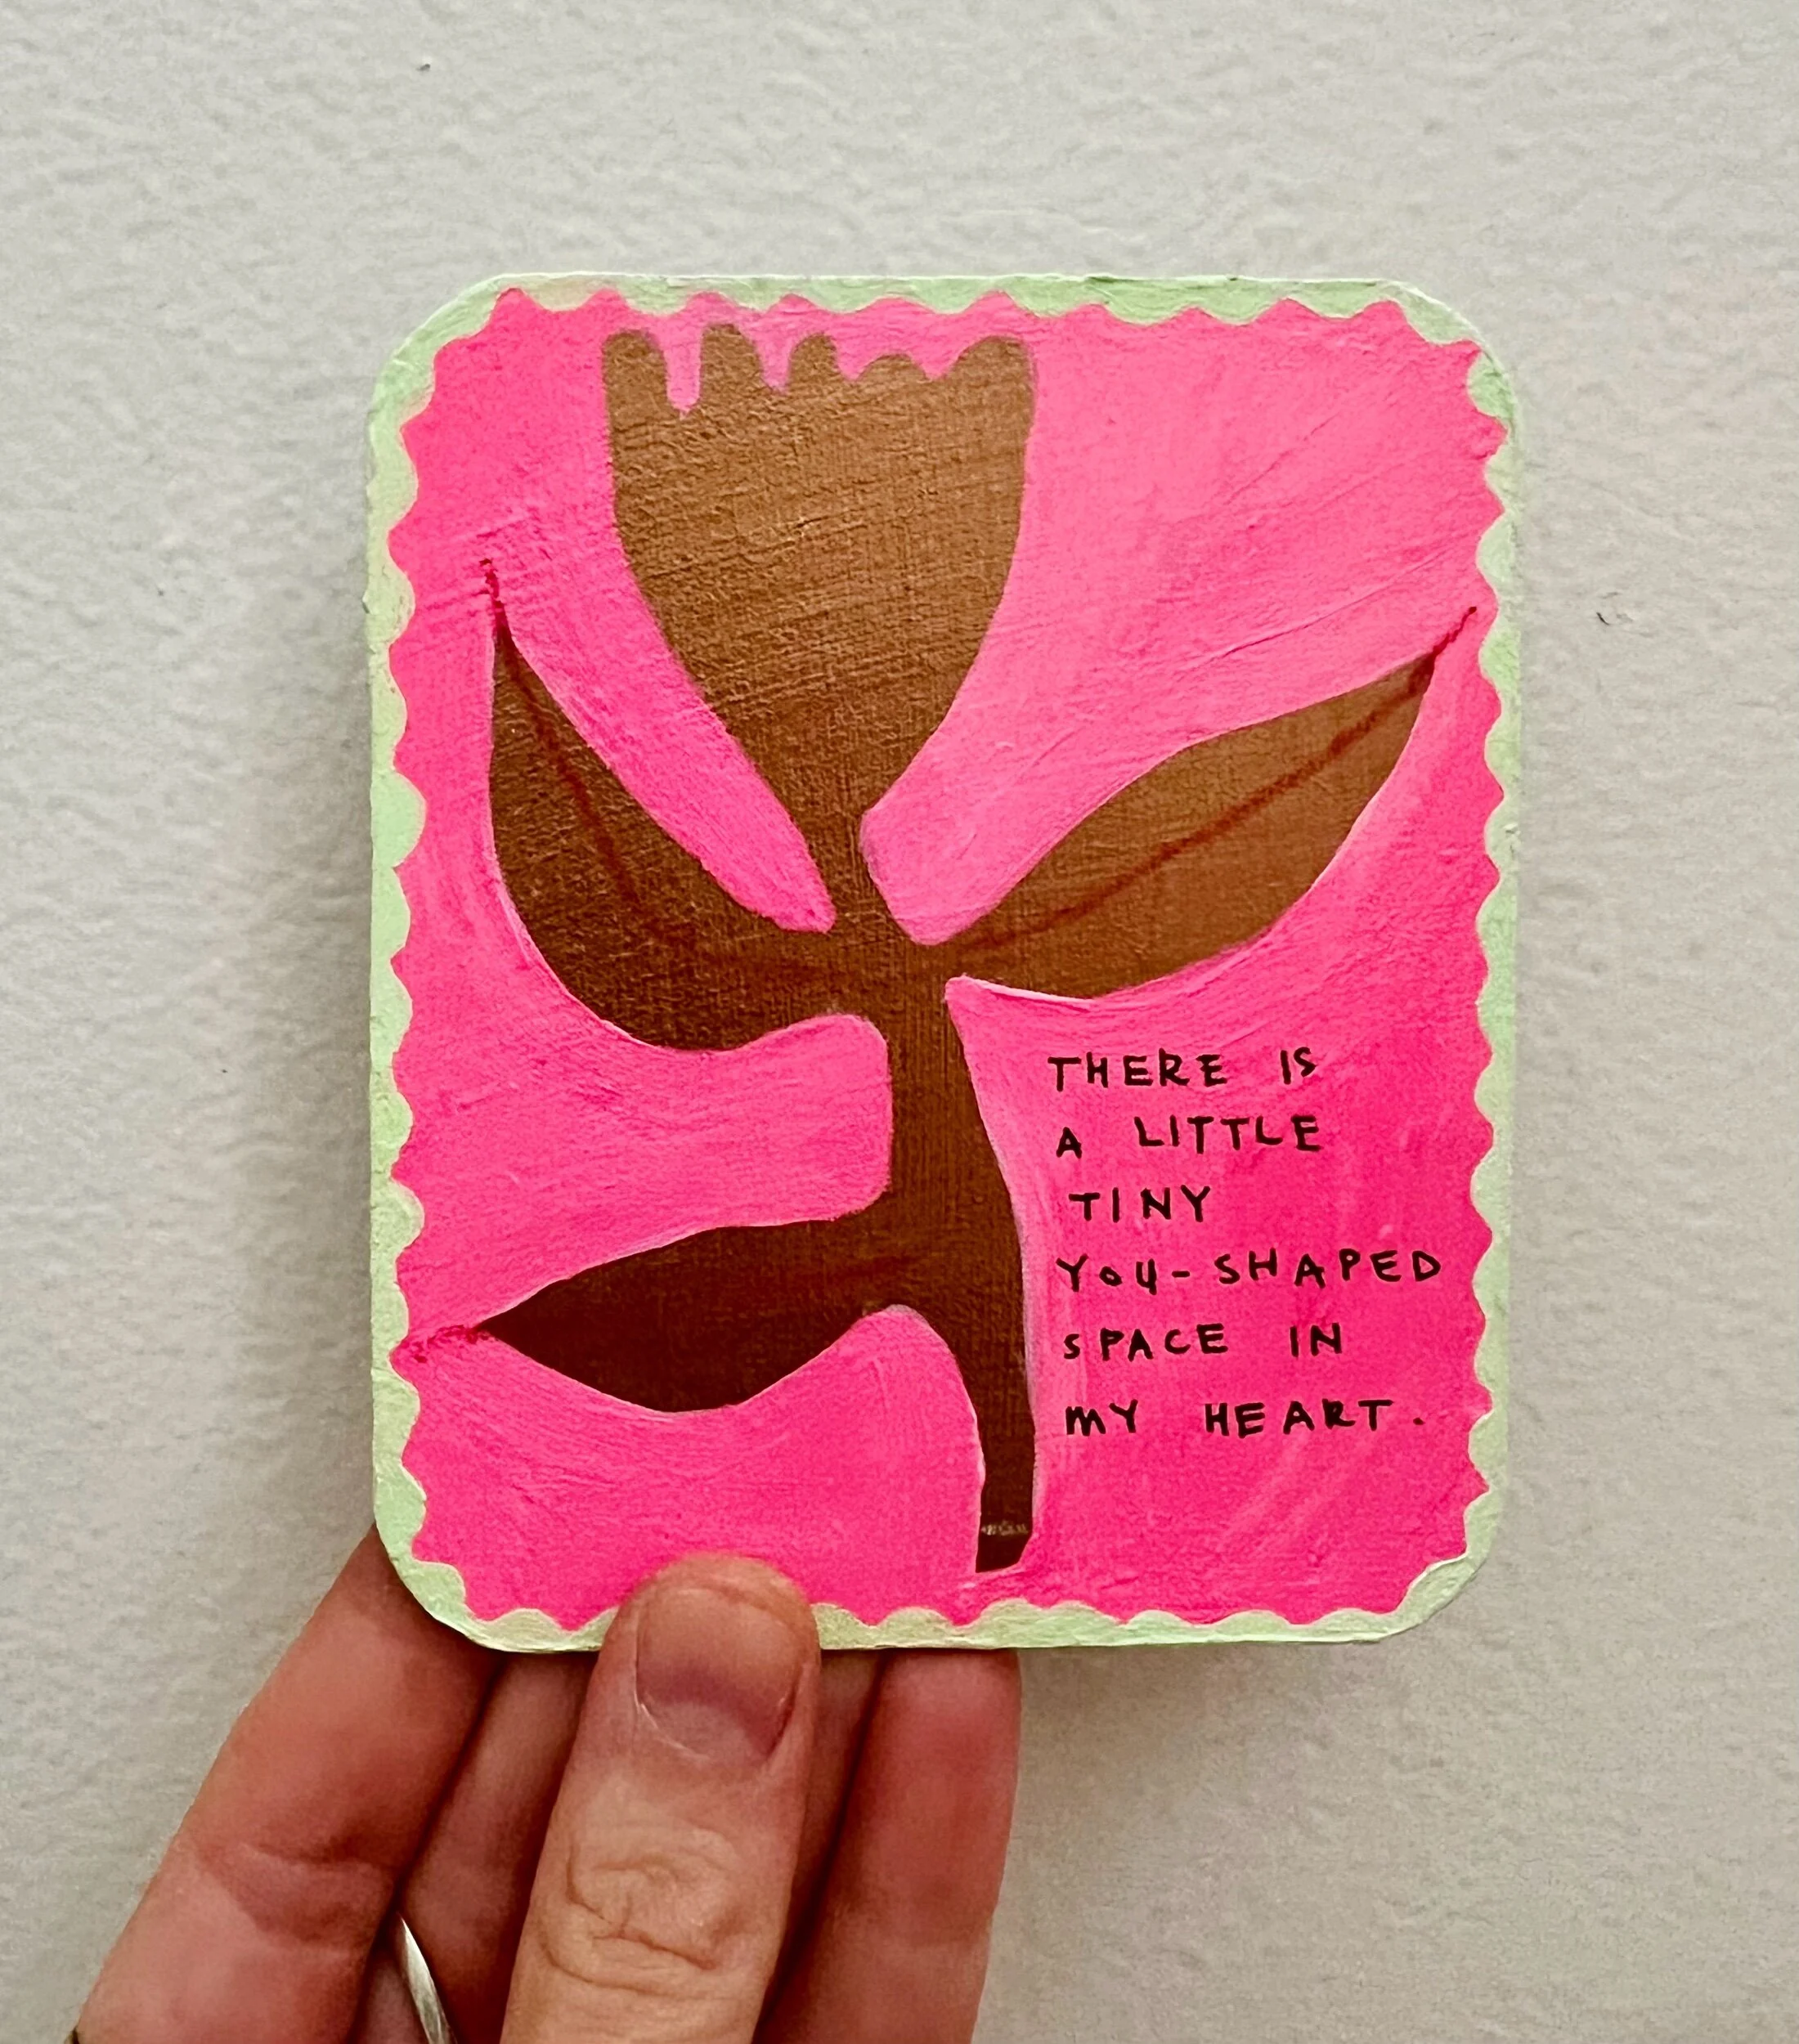 THERE IS
A LITTLE
TINY
YOU-SHAPED
SPACE IN
MY HEART.